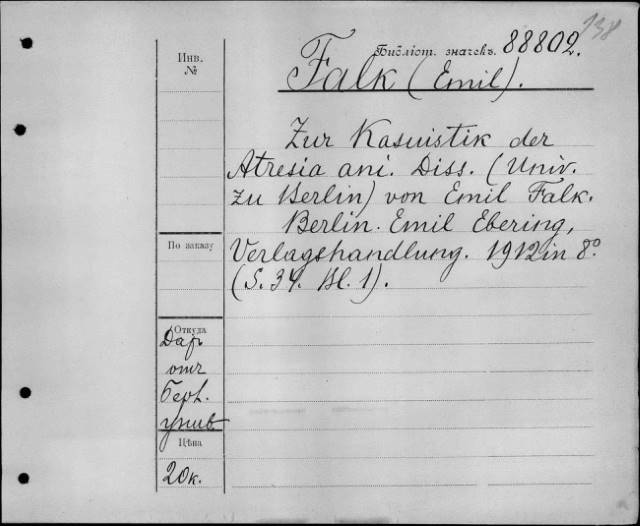 138
Библіот. значекъ. 88802.
Инв.
№
Falk (Emil).
Zur Kasuistik der
Atresia ani. Diss. (Univ.
zu Berlin) von Emil Falk.
Berlin. Emil Ebering,
По заказу
Verlagshandlung. 1912 in 8º.
(S. 34. Bl. 1).
Откуда
Даръ
отъ
Берл.
унив.
Цѣна
20 к.